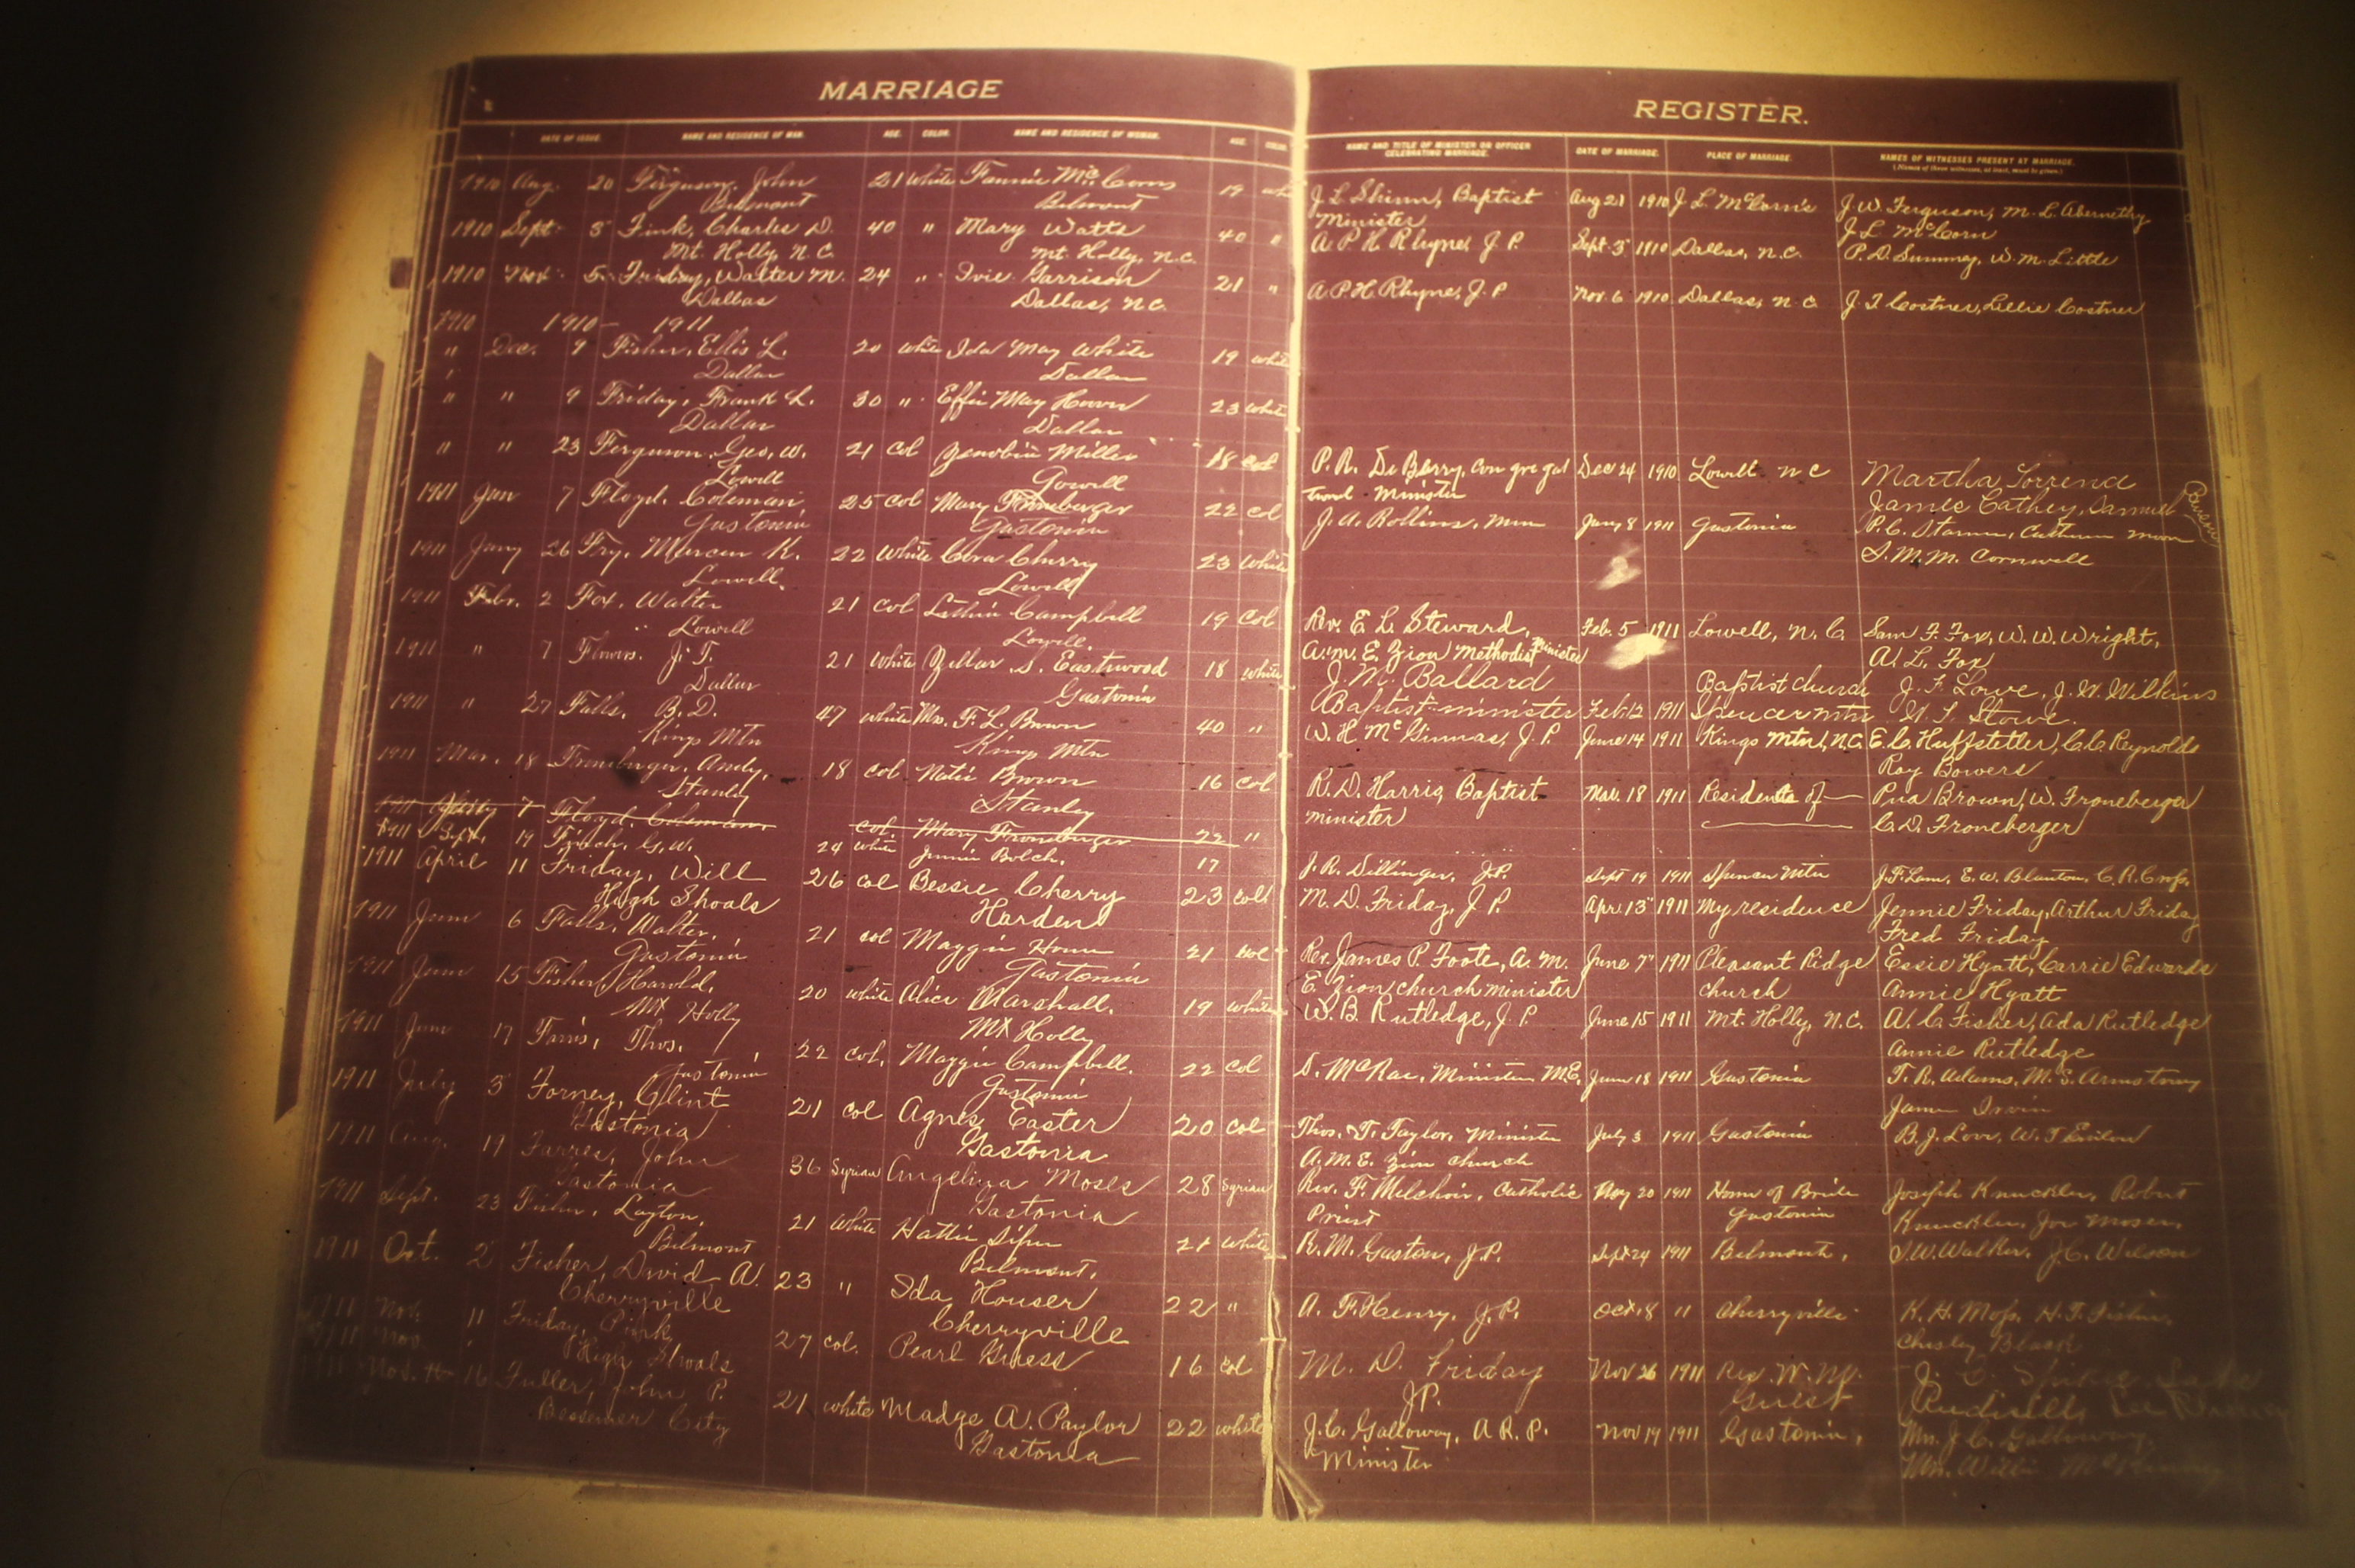 MARRIAGE
DATE OF ISSUE. NAME AND RESIDENCE OF MAN. AGE. COLOR. NAME AND RESIDENCE OF WOMAN. AGE. COLOR.
1910 Aug. 20 Ferguson, John 21 white Fannie McCorn 19 wh
Belmont Belmont
1910 Sept 3 Fink, Charles D. 40 " Mary Watts 40 "
Mt. Holly, N.C. Mt. Holly, N.C.
1910 Nov 5 Friday, Walter M. 24 " Ivie Garrison 21 "
Dallas Dallas, N.C.
1910 1910 - 1911
" Dec. 9 Fisher, Ellis L. 20 white Ida May White 19 white
Dallas Dallas
" " 9 Friday, Frank L. 30 " Effie May 23 white
Dallas Dallas
" " 23 Ferguson, Geo. W. 21 col Zenobia Miller 18 col
Lowell Lowell
1911 Jan 7 Floyd, Coleman 25 col Mary Froneberger 22 col
Gastonia Gastonia
1911 Jany 26 Fry, K. 22 white Cora Cherry 23 white
Lowell. Lowell
1911 Febr. 2 Fox, Walter 21 col Campbell 19 col
Lowell Lowell.
1911 " 7 Flowers, J. T. 21 white Zellar S. Eastwood 18 white
Dallas Gastonia
1911 " 27 Falls, B. D. 47 white Mrs. F. L. Brown 40 "
Kings Mtn Kings Mtn
1911 Mar. 18 Froneberger, Andy, 18 col Brown 16 col
Stanley Stanley
7 Floyd, Coleman. col. Mary Froneberger 22 "
1911 Sept. 19 Finch, G. W. 24 white Bolch. 17
1911 April 11 Friday, Will 26 col Bessie Cherry 23 col
High Shoals Harden
1911 June 6 Falls, Walter, 21 col Maggie 21 col
Gastonia Gastonia
1911 June 15 Fisher, Harold, 20 white Alice Marshall. 19 white
Mt Holly Mt Holly
1911 June 17 Farris, Thos. 22 col. Maggie Campbell. 22 col
Gastonia Gastonia
1911 July 3 Forney, Clint 21 col Agnes Easter 20 col
Gastonia Gastonia
1911 Aug. 19 Farres, John 36 Syrian Angelina Moses 28 Syrian
Gastonia Gastonia
1911 Sept. 23 Fisher, Layton, 21 white Hattie 21 white
Belmont Belmont.
1911 Oct. 2 Fisher, David A. 23 " Ida Houser 22 "
Cherryville Cherryville
1911 Nov. 11 Friday, Pink 27 col. Pearl Guess 16 col
1911 Nov High Shoals
1911 Nov. 16 Fuller, John P. 21 white Madge A. Paylor 22 white
Bessemer City Gastonia
REGISTER.
NAME AND TITLE OF MINISTER OR OFFICER CELEBRATING MARRIAGE. DATE OF MARRIAGE. PLACE OF MARRIAGE. NAMES OF WITNESSES PRESENT AT MARRIAGE.
(Names of three witnesses, at least, must be given.)
J. L. Shinn, Baptist Aug 21 1910 J L McCorn's J. W. Ferguson, M. L. Abernethy
Minister J L McCorn
A. P. H. Rhyne, J. P. Sept. 3 1910 Dallas, N.C. P. D. Summey, W. M. Little
A. P. H. Rhyne, J. P Nov. 6 1910 Dallas, N C. J. T Costner, Lillie Costner
P. R. DeBerry, Congrega Dec 24 1910 Lowell N C Martha Torrence
tional Minister James Cathey, Samuel
J. A. Rollins, Min Jany 8 1911 Gastonia P. C. Starnes,
S. M. M. Cornwell
Rev. E. L. Steward, Feb. 5 1911 Lowell, N. C. Sam F. Fox, W. W. Wright,
A. M. E. Zion Methodist Minister A. L. Fox
J. M. Ballard Baptist church J. F. Lowe, J. W. Wilkins
Baptist minister Feb 12 1911 Spencer Mtn W. T. Stowe.
W. H McGinnas, J. P. June 14 1911 Kings Mtn, N.C. E. C. Huffstetler, C. C. Reynolds
Roy Bowers
R. D. Harris, Baptist Mar. 18 1911 Residents of Pua Brown, W. Froneberger
minister C. D. Froneberger
J. R. Dillinger, J.P. Sept 19 1911 Spencer Mtn J. F. Lam, E. W. Blanton, C. R.
M. D. Friday, J. P. Apr. 13 1911 My residence Jennie Friday, Arthur Friday
Fred Friday
Rev. James P. Foote, A. M. June 7 1911 Pleasant Ridge Essie Hyatt, Carrie Edwards
E. Zion church minister church Annie Hyatt
W. B Rutledge, J. P. June 15 1911 Mt. Holly, N.C. A. C. Fisher, Ada Rutledge
Annie Rutledge
D. McRae, Minister M.E. June 18 1911 Gastonia T. R. Adams, M. S. Armstrong
James Irvin
Thos. T. Taylor, Minister July 3 1911 Gastonia B. J. Love, W. T
A. M. E. Zion church
Rev. F. Melchoir, Catholic 20 1911 Home of Bride Joseph Knuckler, Robert
Priest Gastonia Knuckler, Joe Moses.
R. M. Gaston, J.P. Sept 24 1911 Belmont, S. W. Walker, J. C. Wilson
A. F. Henry, J.P. Oct. 8 11 Cherryville K. H. Moss, H. T. Fisher,
Chesley Black
M. D. Friday Nov 26 1911 Res. W. M. J.
JP. Guest
J. C. Galloway, A R. P. Nov 19 1911 Gastonia, Mrs. J C. Galloway,
Minister Mrs. Willie